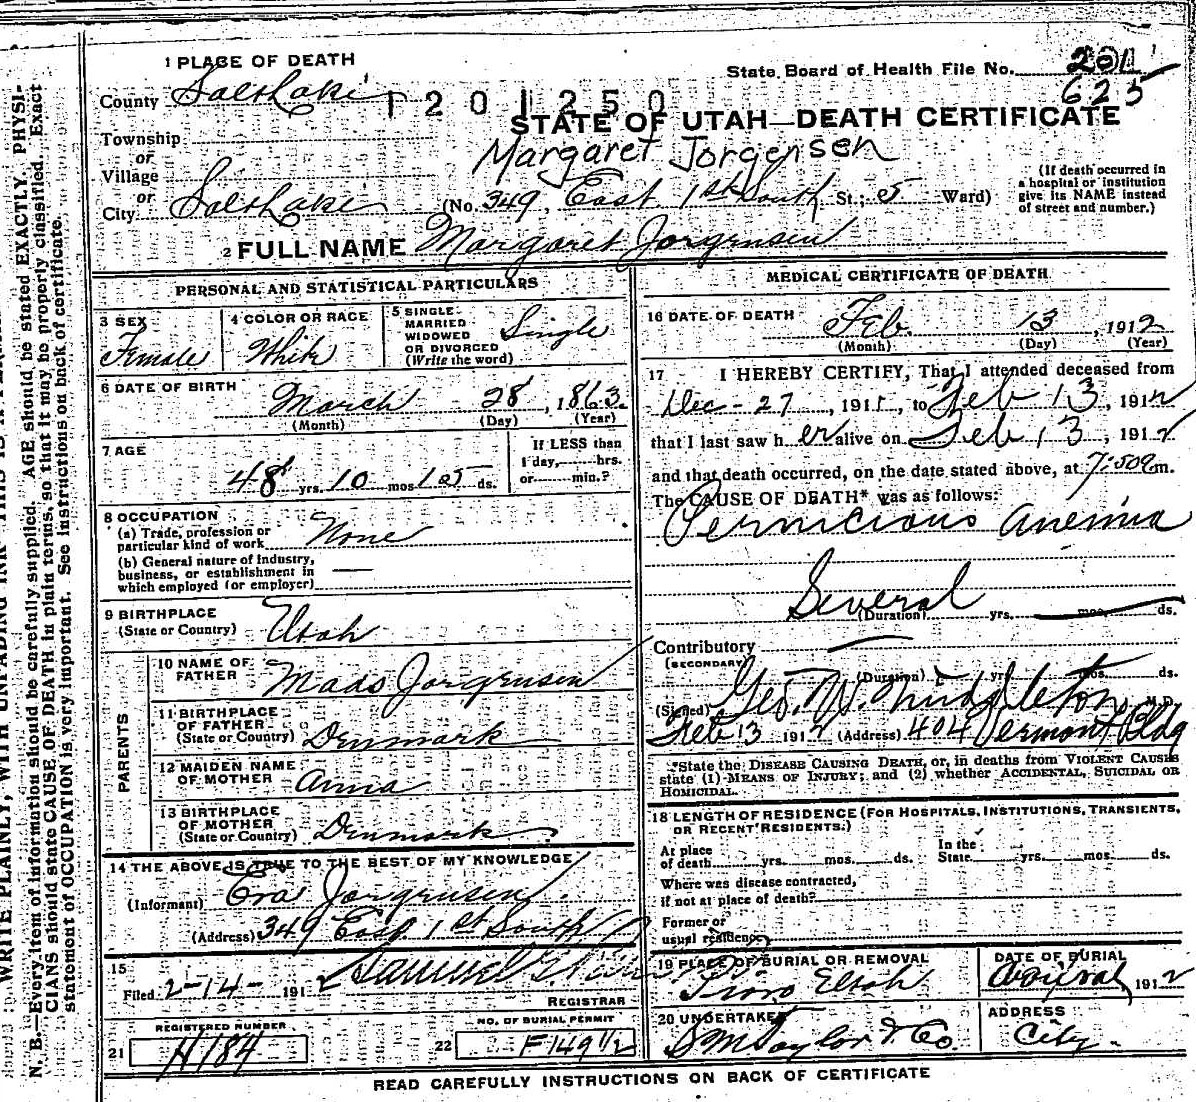 1 PLACE OF DEATH
State Board of Health File No. 201
625
County Salt Lake
1201250
STATE OF UTAH—DEATH CERTIFICATE
Township
or
Village
or
City Salt Lake
Margaret Jorgensen
(No. 349, East 1st South St.; 5 Ward)
(If death occurred in
a hospital or institution
give its NAME instead
of street and number.)
2 FULL NAME Margaret Jorgensen
PERSONAL AND STATISTICAL PARTICULARS
3 SEX
Female
4 COLOR OR RACE
White
5 SINGLE
MARRIED
WIDOWED
OR DIVORCED
(Write the word)
Single
6 DATE OF BIRTH
March 28, 1863.
(Month) (Day) (Year)
7 AGE
48 yrs. 10 mos. 15 ds.
If LESS than
1 day, hrs.
or min.?
8 OCCUPATION
(a) Trade, profession or
particular kind of work None
(b) General nature of industry,
business, or establishment in
which employed (or employer)
9 BIRTHPLACE
(State or Country) Utah
PARENTS
10 NAME OF
FATHER Mads Jorgensen
11 BIRTHPLACE
OF FATHER
(State or Country) Denmark
12 MAIDEN NAME
OF MOTHER Anna
13 BIRTHPLACE
OF MOTHER
(State or Country) Denmark
14 THE ABOVE IS TRUE TO THE BEST OF MY KNOWLEDGE
(Informant) Eva Jorgensen
(Address) 349 East 1st South
15
Filed 2-14- 1912 Samuel G.
REGISTRAR
REGISTERED NUMBER
21 H184
NO. OF BURIAL PERMIT
22 F149 1/2
MEDICAL CERTIFICATE OF DEATH
16 DATE OF DEATH
Feb. 13, 1912
(Month) (Day) (Year)
17 I HEREBY CERTIFY, That I attended deceased from
Dec - 27, 1911, to Feb 13, 1912
that I last saw her alive on Feb 13, 1912
and that death occurred, on the date stated above, at 7:50 a m.
The CAUSE OF DEATH* was as follows:
Pernicious anemia
Several
(Duration) yrs. mos. ds.
Contributory
(SECONDARY)
(Duration) yrs. mos. ds.
(Signed) Geo. W. Middleton, M.D.
Feb 13 1912 (Address) 404 Vermont Bldg
*State the DISEASE CAUSING DEATH, or, in deaths from VIOLENT CAUSES
state (1) MEANS OF INJURY; and (2) whether ACCIDENTAL, SUICIDAL OR
HOMICIDAL.
18 LENGTH OF RESIDENCE (FOR HOSPITALS, INSTITUTIONS, TRANSIENTS,
OR RECENT RESIDENTS.)
At place
of death yrs. mos. ds.
In the
State yrs. mos. ds.
Where was disease contracted,
if not at place of death?
Former or
usual residence
19 PLACE OF BURIAL OR REMOVAL
Provo Utah
DATE OF BURIAL
1912
20 UNDERTAKER
S M Taylor & Co.
ADDRESS
City.
READ CAREFULLY INSTRUCTIONS ON BACK OF CERTIFICATE
N. B.—Every item of information should be carefully supplied. AGE should be stated EXACTLY. PHYSI-
CIANS should state CAUSE OF DEATH in plain terms, so that it may be properly classified. Exact
statement of OCCUPATION is very important. See instructions on back of certificate.
WRITE PLAINLY, WITH UNFADING INK—THIS IS A